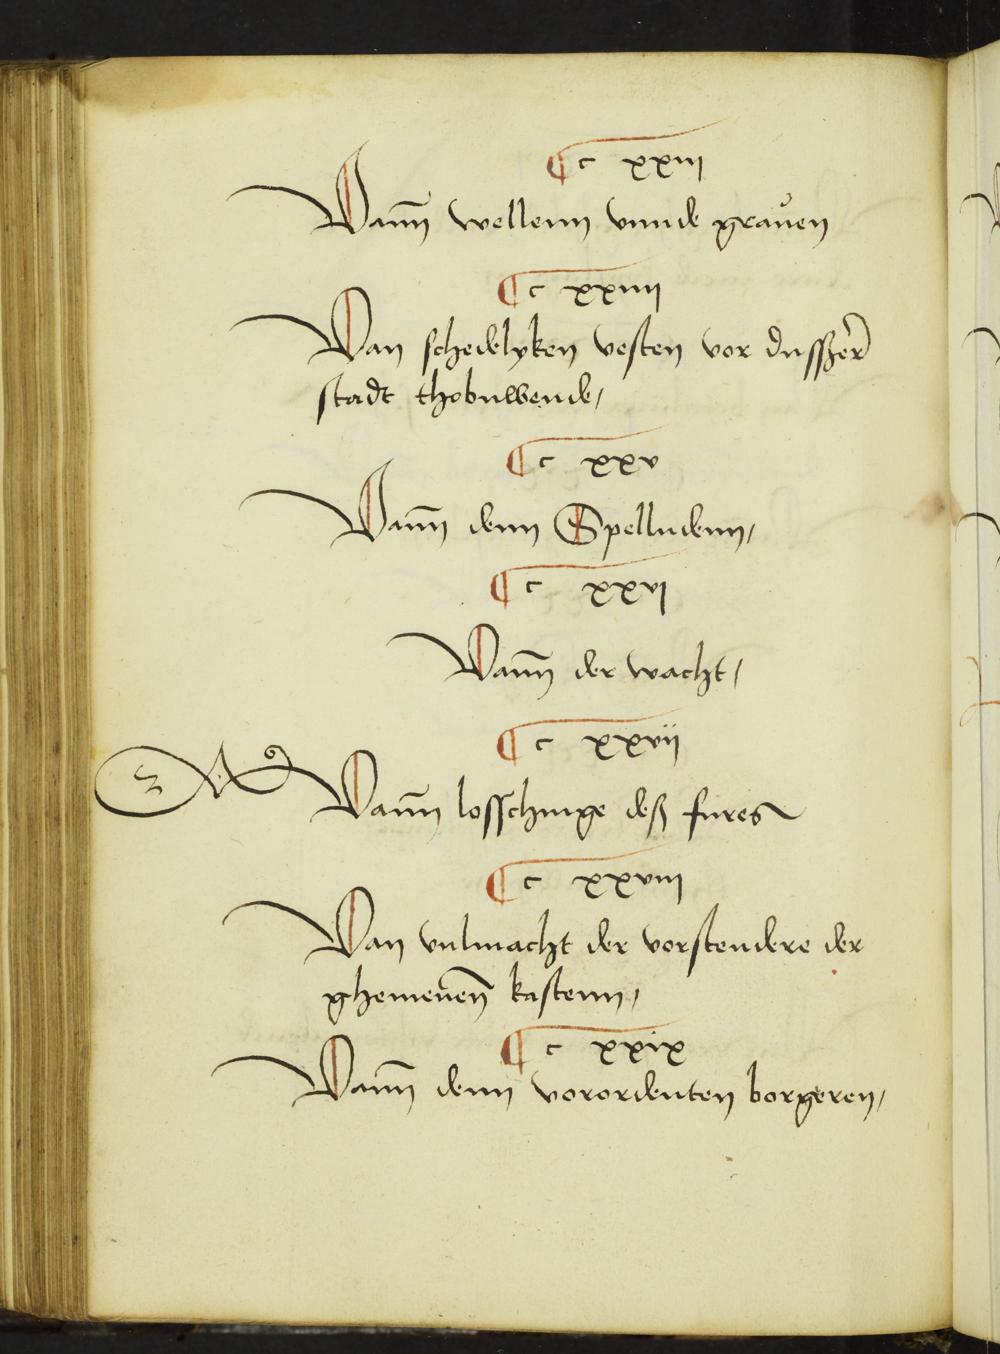 ¶ c xxiii
Vann̄ wellenn vnnde grauen
¶ c xxiiii
Van schedelyken vesten vor dusszer
stadt thobuwende,
¶ c xxv
Vann̄ denn Spelludenn,
¶ c xxvi
Vann̄ der wacht,
¶ c xxvii
Vann̄ losschinge deß fures
¶ c xxviii
Van vulmacht der vorstendere der
ghemenen̄ kastenn,
¶ c xxix
Vann̄ denn vorordenten borgeren,